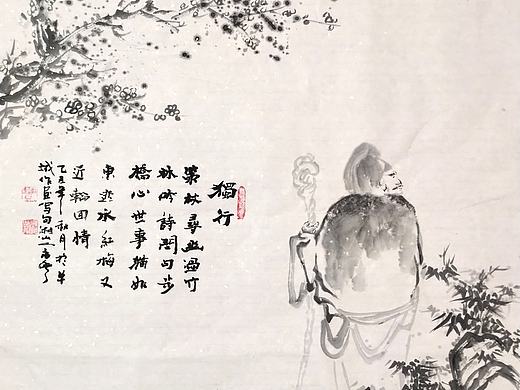 獨行
策杖尋幽過竹
林吟詩問句步
橋心世事猶如
東逝水紅梅又
近 回情
乙 年秋月於羊
城作 寫句